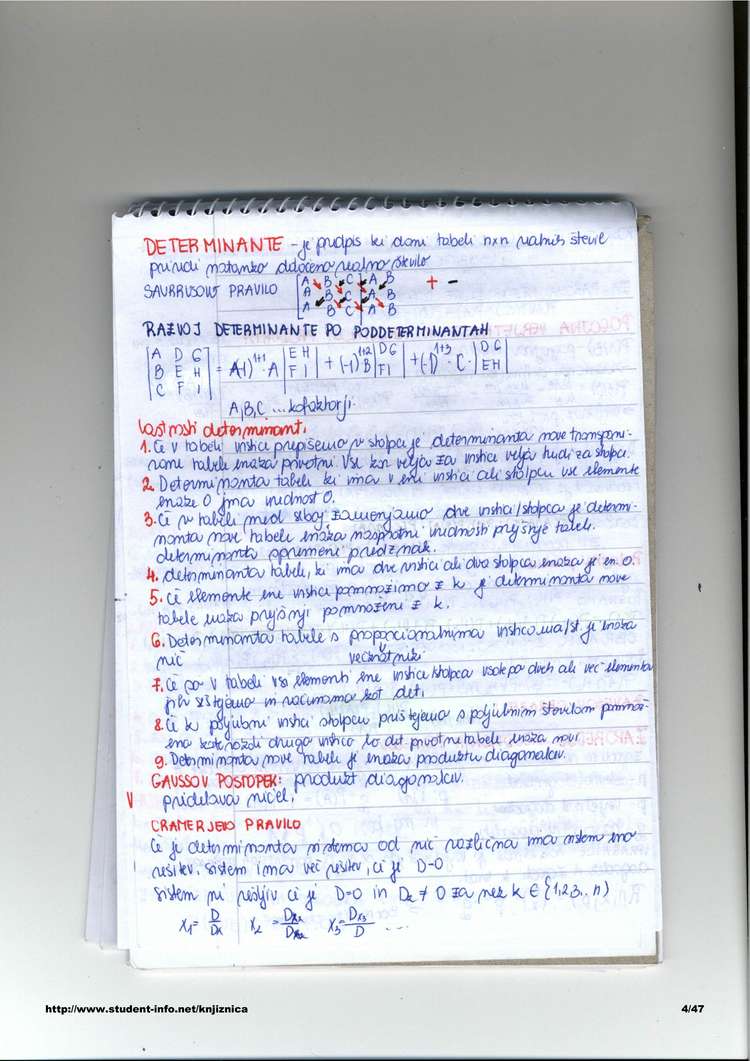 DETERMINANTE - je predpis ki dani tabeli nxn realnih števil
priredi natanko določeno realno število
SAURRUSOVO PRAVILO [A B C] A B + -
A B C A B
A B C A B
RAZVOJ DETERMINANTE PO PODDETERMINANTAH
|A D G| = (-1)¹⁺¹ · A |E H| + (-1)¹⁺² B |D G| + (-1)¹⁺³ · C · |D G|
|B E H| |F I| |F I| |E H|
|C F I|
A, B, C ... kofaktorji
lastnosti determinant:
1. Če v tabeli vrstice prepišemo v stolpce je determinanta nove transponi-
rane tabele enaka prvotni. Vse kar velja za vrstice velja tudi za stolpce.
2. Determinanta tabele ki ima v eni vrstici ali stolpcu vse elemente
enake 0 ima vrednost 0.
3. Če v tabeli med seboj zamenjamo dve vrstici/stolpca je determi-
nanta nove tabele enaka nasprotni vrednosti prejšnje tabele.
determinanta spremeni predznak.
4. determinanta tabele, ki ima dve vrstici ali dva stolpca enaka je en. 0.
5. Če elemente ene vrstice pomnožimo z k je determinanta nove
tabele enaka prejšnji pomnoženi z k.
6. Determinanta tabele s proporcionalnima vrsticama/st. je enaka
nič večkratniki
7. Če so v tabeli vsi elementi ene vrstice/stolpca vsote po dveh ali več elementov
jih seštejemo in računamo kot det.
8. Če k poljubni vrstici stolpcu prištejemo s poljubnim številom pomnož-
eno katerokoli drugo vrstico to det prvotne tabele enaka novi.
9. Determinanta nove tabele je enaka produktu diagonalcev.
GAUSSOV POSTOPEK: produkt diagonalcev.
V pridelava ničel.
CRAMERJEVO PRAVILO
Če je determinanta sistema od nič različna ima sistem eno
rešitev. sistem ima več rešitev, če je D=0.
sistem ni rešljiv če je D=0 in Dₖ ≠ 0 za nek k ∈ {1,2,3.. n)
x₁ = D/Dx x₂ = Dx₂/Dx₂ x₃ = Dx₃/D ...
http://www.student-info.net/knjiznica
4/47